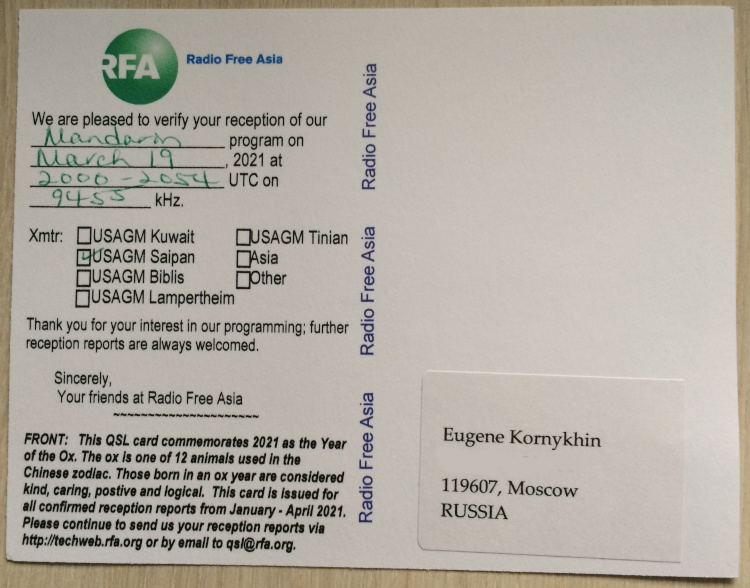 RFA
Radio Free Asia
We are pleased to verify your reception of our
Mandarin program on
March 19, 2021 at
2000-2054 UTC on
9455 kHz.
Xmtr: USAGM Kuwait
USAGM Saipan
USAGM Biblis
USAGM Lampertheim
USAGM Tinian
Asia
Other
Thank you for your interest in our programming; further
reception reports are always welcomed.
Sincerely,
Your friends at Radio Free Asia
~~~~~~~~~~~~~~~~~~~~~
FRONT: This QSL card commemorates 2021 as the Year
of the Ox. The ox is one of 12 animals used in the
Chinese zodiac. Those born in an ox year are considered
kind, caring, postive and logical. This card is issued for
all confirmed reception reports from January - April 2021.
Please continue to send us your reception reports via
http://techweb.rfa.org or by email to qsl@rfa.org.
Radio Free Asia
Radio Free Asia
Radio Free Asia
Eugene Kornykhin
119607, Moscow
RUSSIA